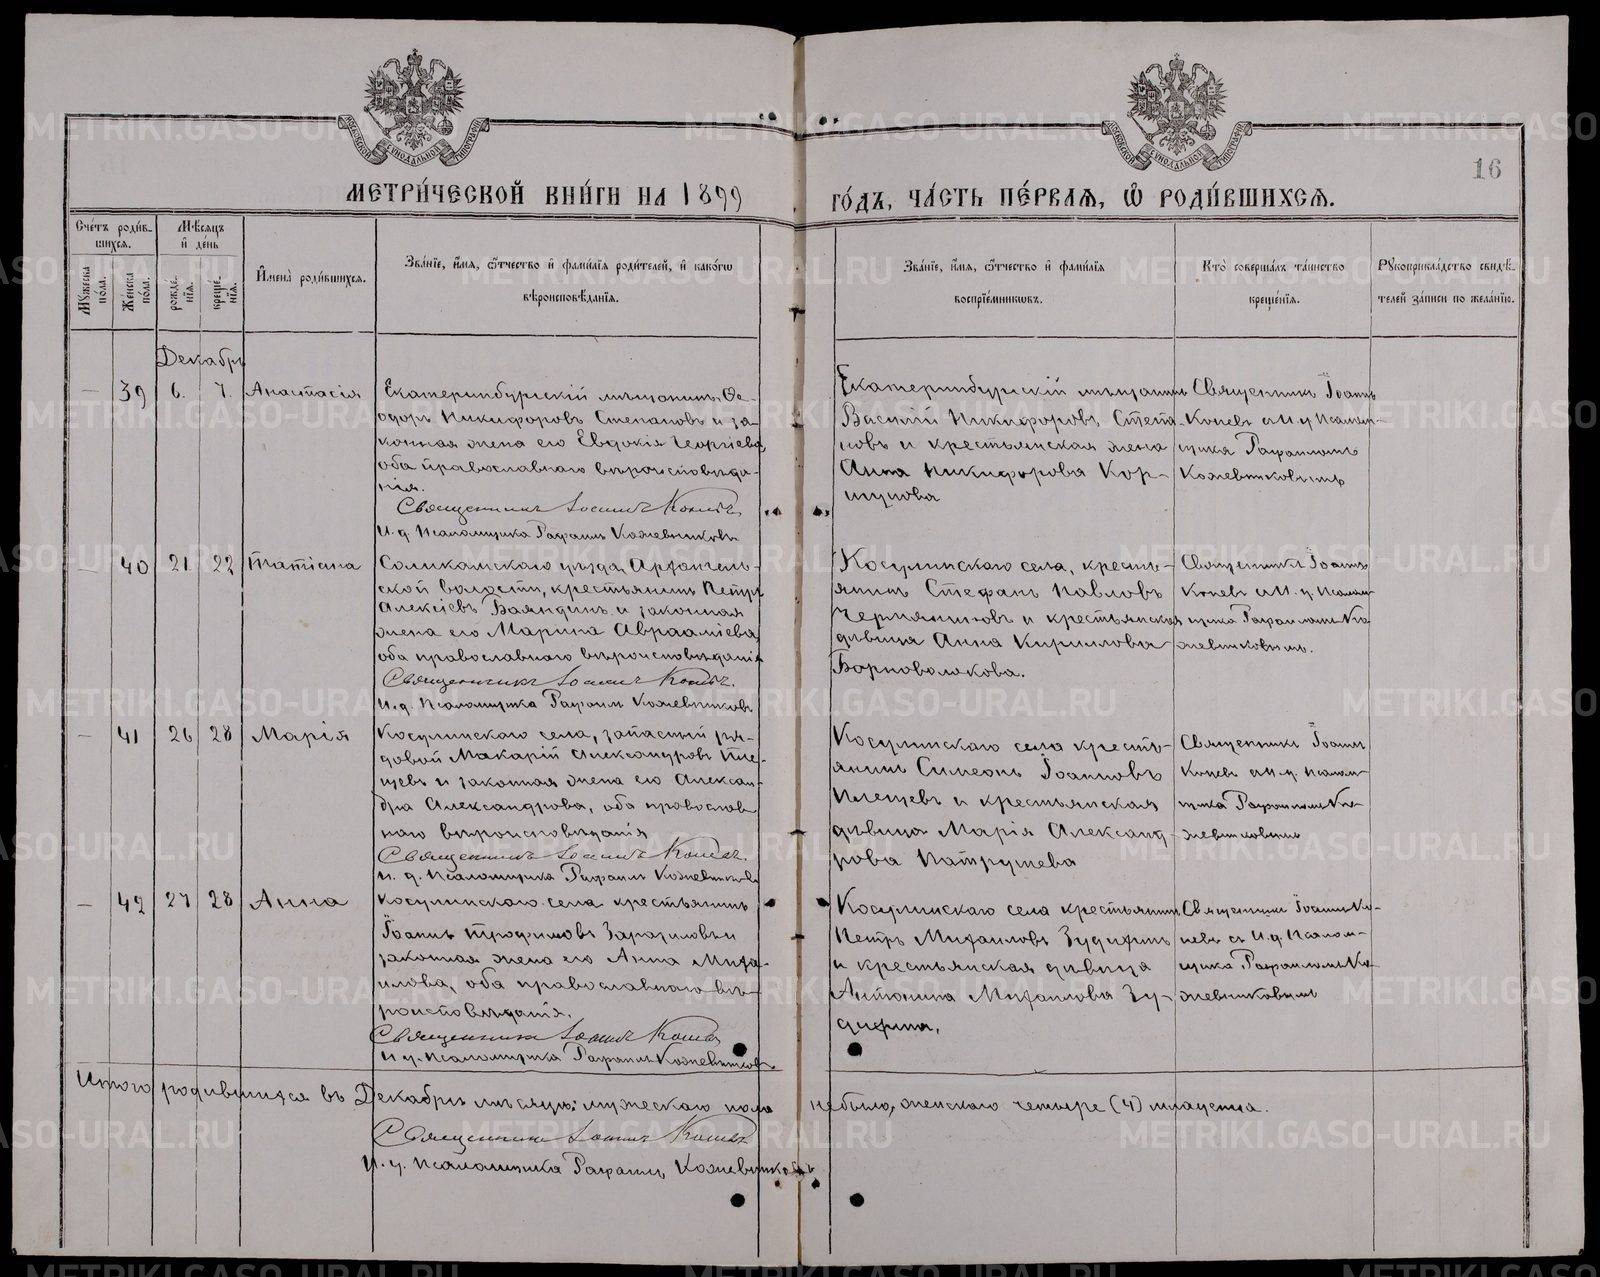 МОСКОВСКОЙ СУНОДАЛЬНОЙ ТИПОГРАФІИ
МОСКОВСКОЙ СУНОДАЛЬНОЙ ТИПОГРАФІИ
16
МЕТРИ́ЧЕСКОЙ КНИ́ГИ НА 1899 ГО́ДЪ, ЧА́СТЬ ПЕ́РВАѦ, Ѽ РОДИ́ВШИХСѦ.
Сче́тъ роди́в-
шихся.
Мѣсяцъ
и де́нь
Мꙋжеска по́ла.
Же́нска по́ла.
рожде́-нїя.
креще́-нїя.
И҆мена̀ роди́вшихся.
Зва́нїе, и҆мя, ѻ҆́тчество и҆ фами́лїя роди́телей, и҆ како́гѡ
вѣроисповѣ́данїя.
Зва́нїе, и҆мя, ѻ҆́тчество и҆ фами́лїя
воспрїе́мниковъ.
Кто̀ соверша́лъ та́инство
креще́нїя.
Рꙋкоприкла́дство свидѣ́-
телей за́писи по жела́нїю.
Декабрь
— 39 6. 7. Анастасія
Екатеринбургскій мѣщанинъ Ѳе-
одоръ Никифоровъ Степановъ и за-
конная жена его Евдокія Георгіева,
оба православнаго вѣроисповѣда-
нія.
Священникъ Іоаннъ Коневъ.
И. д. Псаломщика Рафаилъ Кожевниковъ
Екатеринбургскій мѣщанинъ
Василій Никифоровъ Степа-
новъ и крестьянская жена
Анна Никифорова Кор-
шунова
Священникъ Іоаннъ
Коневъ съ И. д. Псалом-
щика Рафаиломъ
Кожевниковымъ
— 40 21 22 Татіана
Соликамскаго уѣзда, Архангель-
ской волости, крестьянинъ Петръ
Алексіевъ Баяндинъ и законная
жена его Марина Аврааміева,
оба православнаго вѣроисповѣданія
Священникъ Іоаннъ Коневъ.
И. д. Псаломщика Рафаилъ Кожевниковъ
Косулинскаго села, кресть-
янинъ Стефанъ Павловъ
Черпяшиковъ и крестьянская
дѣвица Анна Кириллова
Борноволокова.
Священникъ Іоаннъ
Коневъ съ И. д. Псалом-
щика Рафаиломъ Ко-
жевниковымъ.
— 41 26 28 Марія
Косулинскаго села, запасный ря-
довой Макарій Александровъ Пле-
щевъ и законная жена его Алексан-
дра Александрова, оба православ-
наго вѣроисповѣданія
Священникъ Іоаннъ Коневъ.
И. д. Псаломщика Рафаилъ Кожевниковъ
Косулинскаго села кресть-
янинъ Симеонъ Іоанновъ
Плещевъ и крестьянская
дѣвица Марія Александ-
рова Патрушева
Священникъ Іоаннъ
Коневъ съ И. д. Псалом-
щика Рафаиломъ Ко-
жевниковымъ
— 42 27 28 Анна
Косулинскаго села крестьянинъ
Іоаннъ Трофимовъ и
законная жена его Анна Миха-
илова, оба православнаго вѣ-
роисповѣданія.
Священникъ Іоаннъ Коневъ
И. д. Псаломщика Рафаилъ Кожевниковъ
Косулинскаго села крестьянинъ
Петръ Михаиловъ Зудихинъ
и крестьянская дѣвица
Антонина Михаилова Зу-
дихина.
Священникъ Іоаннъ Ко-
невъ съ И. д. Псалом-
щика Рафаиломъ Ко-
жевниковымъ
Итого родившихся въ Декабрѣ мѣсяцѣ: мужескаго пола не было, женскаго четыре (4) младенца.
Священникъ Іоаннъ Коневъ
И. д. Псаломщика Рафаилъ Кожевниковъ
METRIKI.GASO-URAL.RU